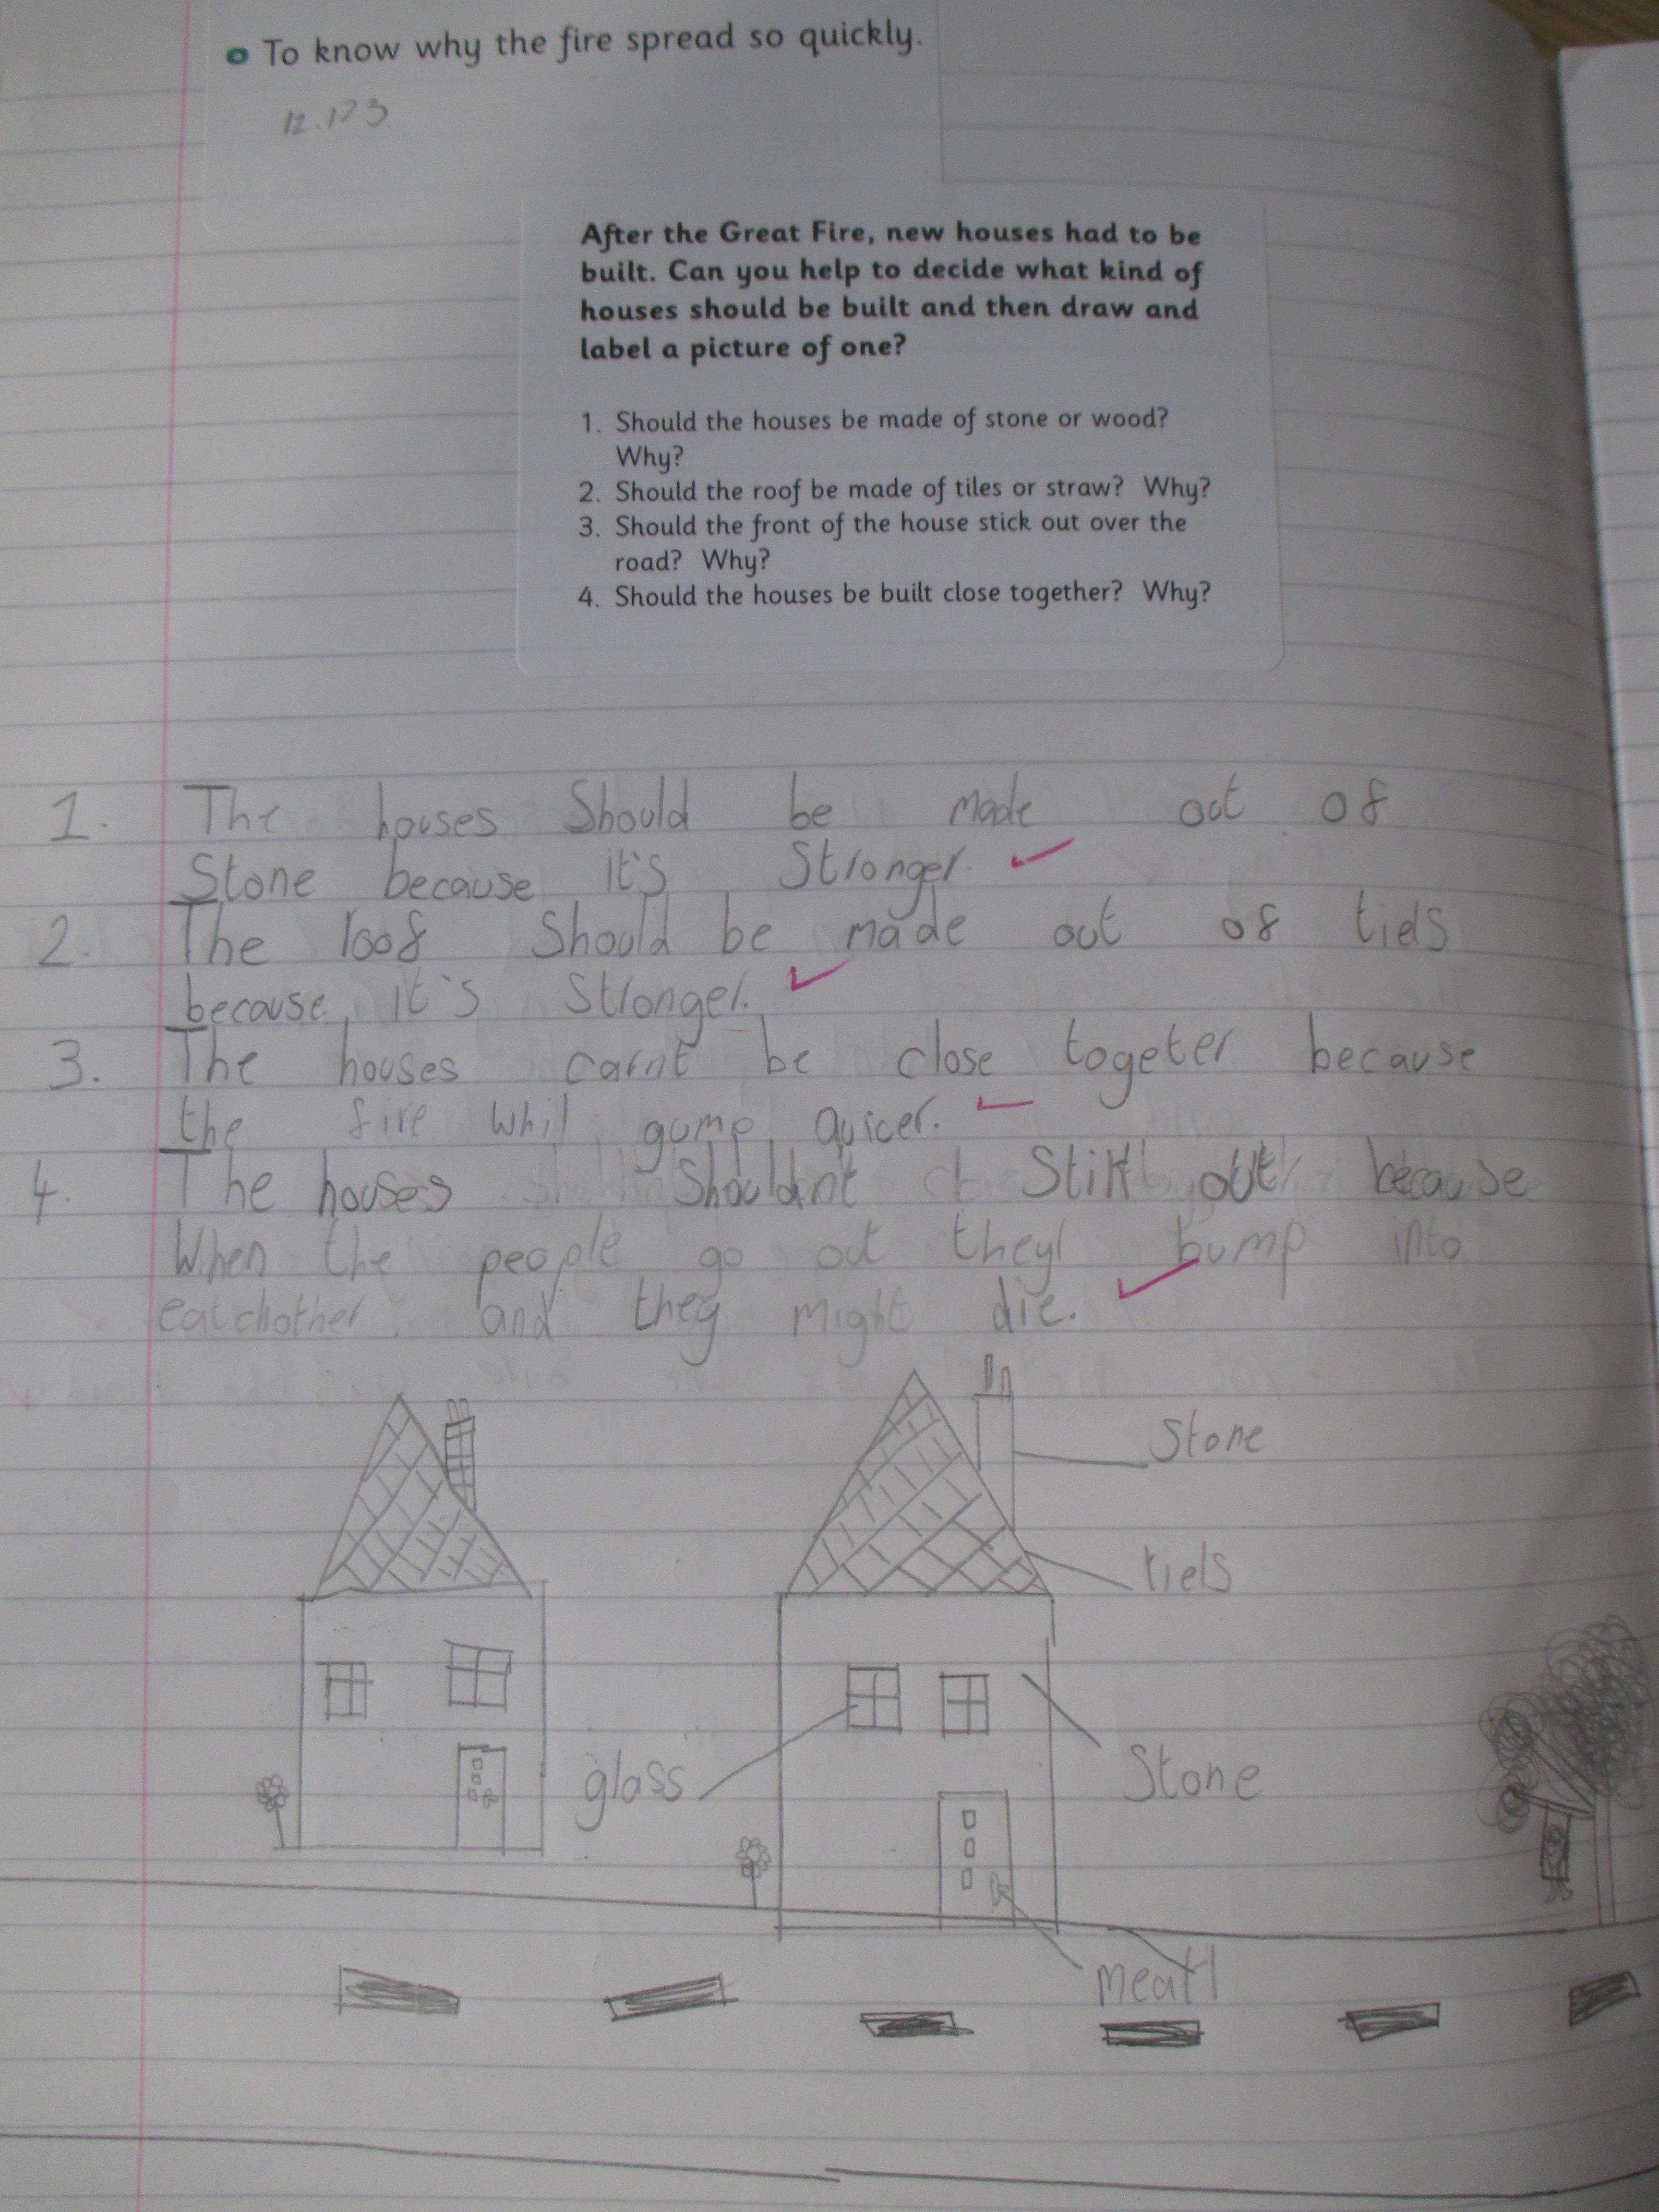 To know why the fire spread so quickly.
12.123
After the Great Fire, new houses had to be
built. Can you help to decide what kind of
houses should be built and then draw and
label a picture of one?
1. Should the houses be made of stone or wood?
Why?
2. Should the roof be made of tiles or straw? Why?
3. Should the front of the house stick out over the
road? Why?
4. Should the houses be built close together? Why?
1. The houses Should be made out of
Stone because it's Stronger.
2. The roof Should be made out of tiels
because it's Stronger.
3. The houses carnt be close togeter because
the fire whil gump quicer.
4. The houses Shouldnt Stik out because
When the people go out theyl bump into
eatchother and they might die.
Stone
tiels
glass
Stone
meatl